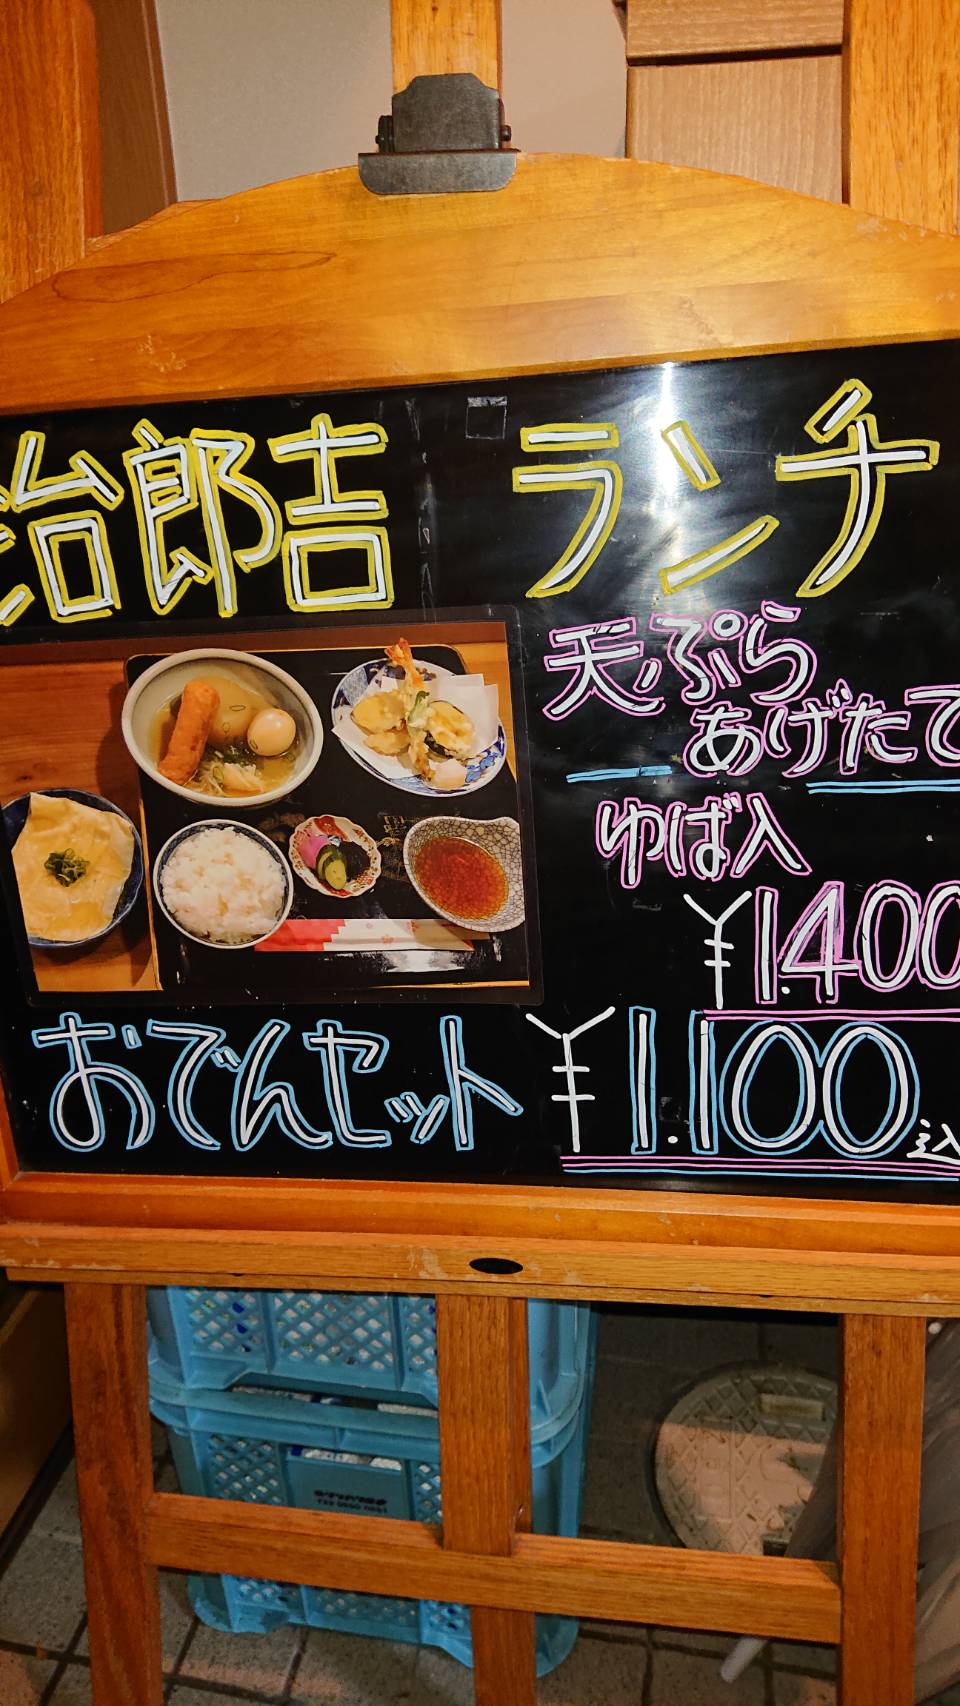 治郎吉 ランチ
天ぷら
あげたて
ゆば入
¥1.400
おでんセット ¥1.100込